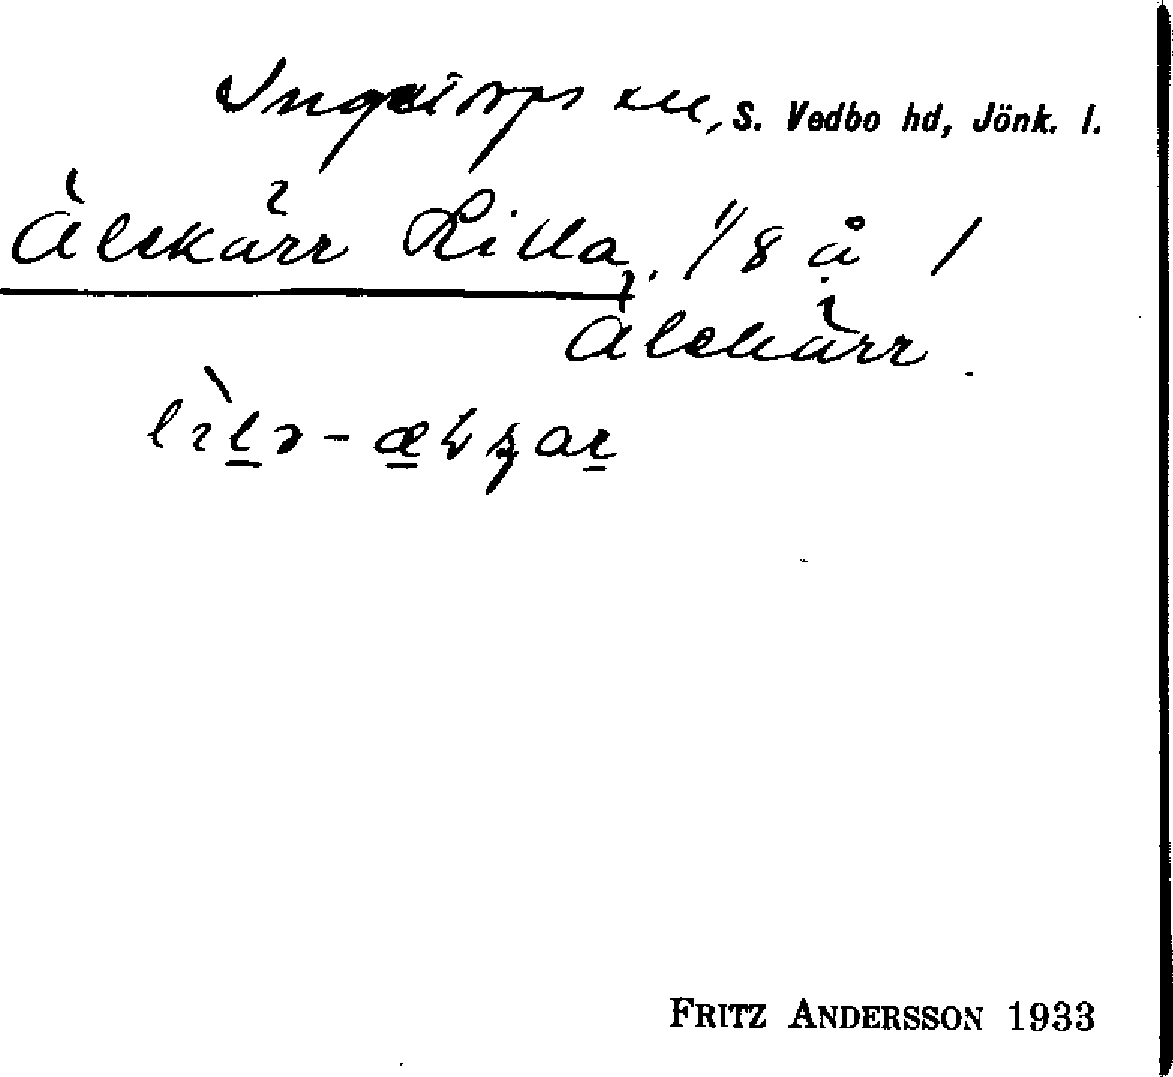 Ingatorps sn, S. Vedbo hd, Jönk. l.
Älekärr Lilla. 1/8 å 1
Älekärr.
FRITZ ANDERSSON 1933